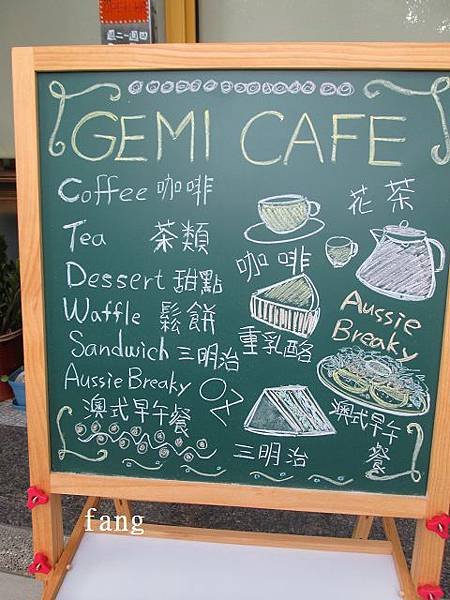 OPEN
GEMI CAFE
Coffee 咖啡
Tea 茶類
Dessert 甜點
Waffle 鬆餅
Sandwich 三明治
Aussie Breaky
澳式早午餐
花茶
咖啡
重乳酪
Aussie
Breaky
澳式早午
餐
三明治
fang